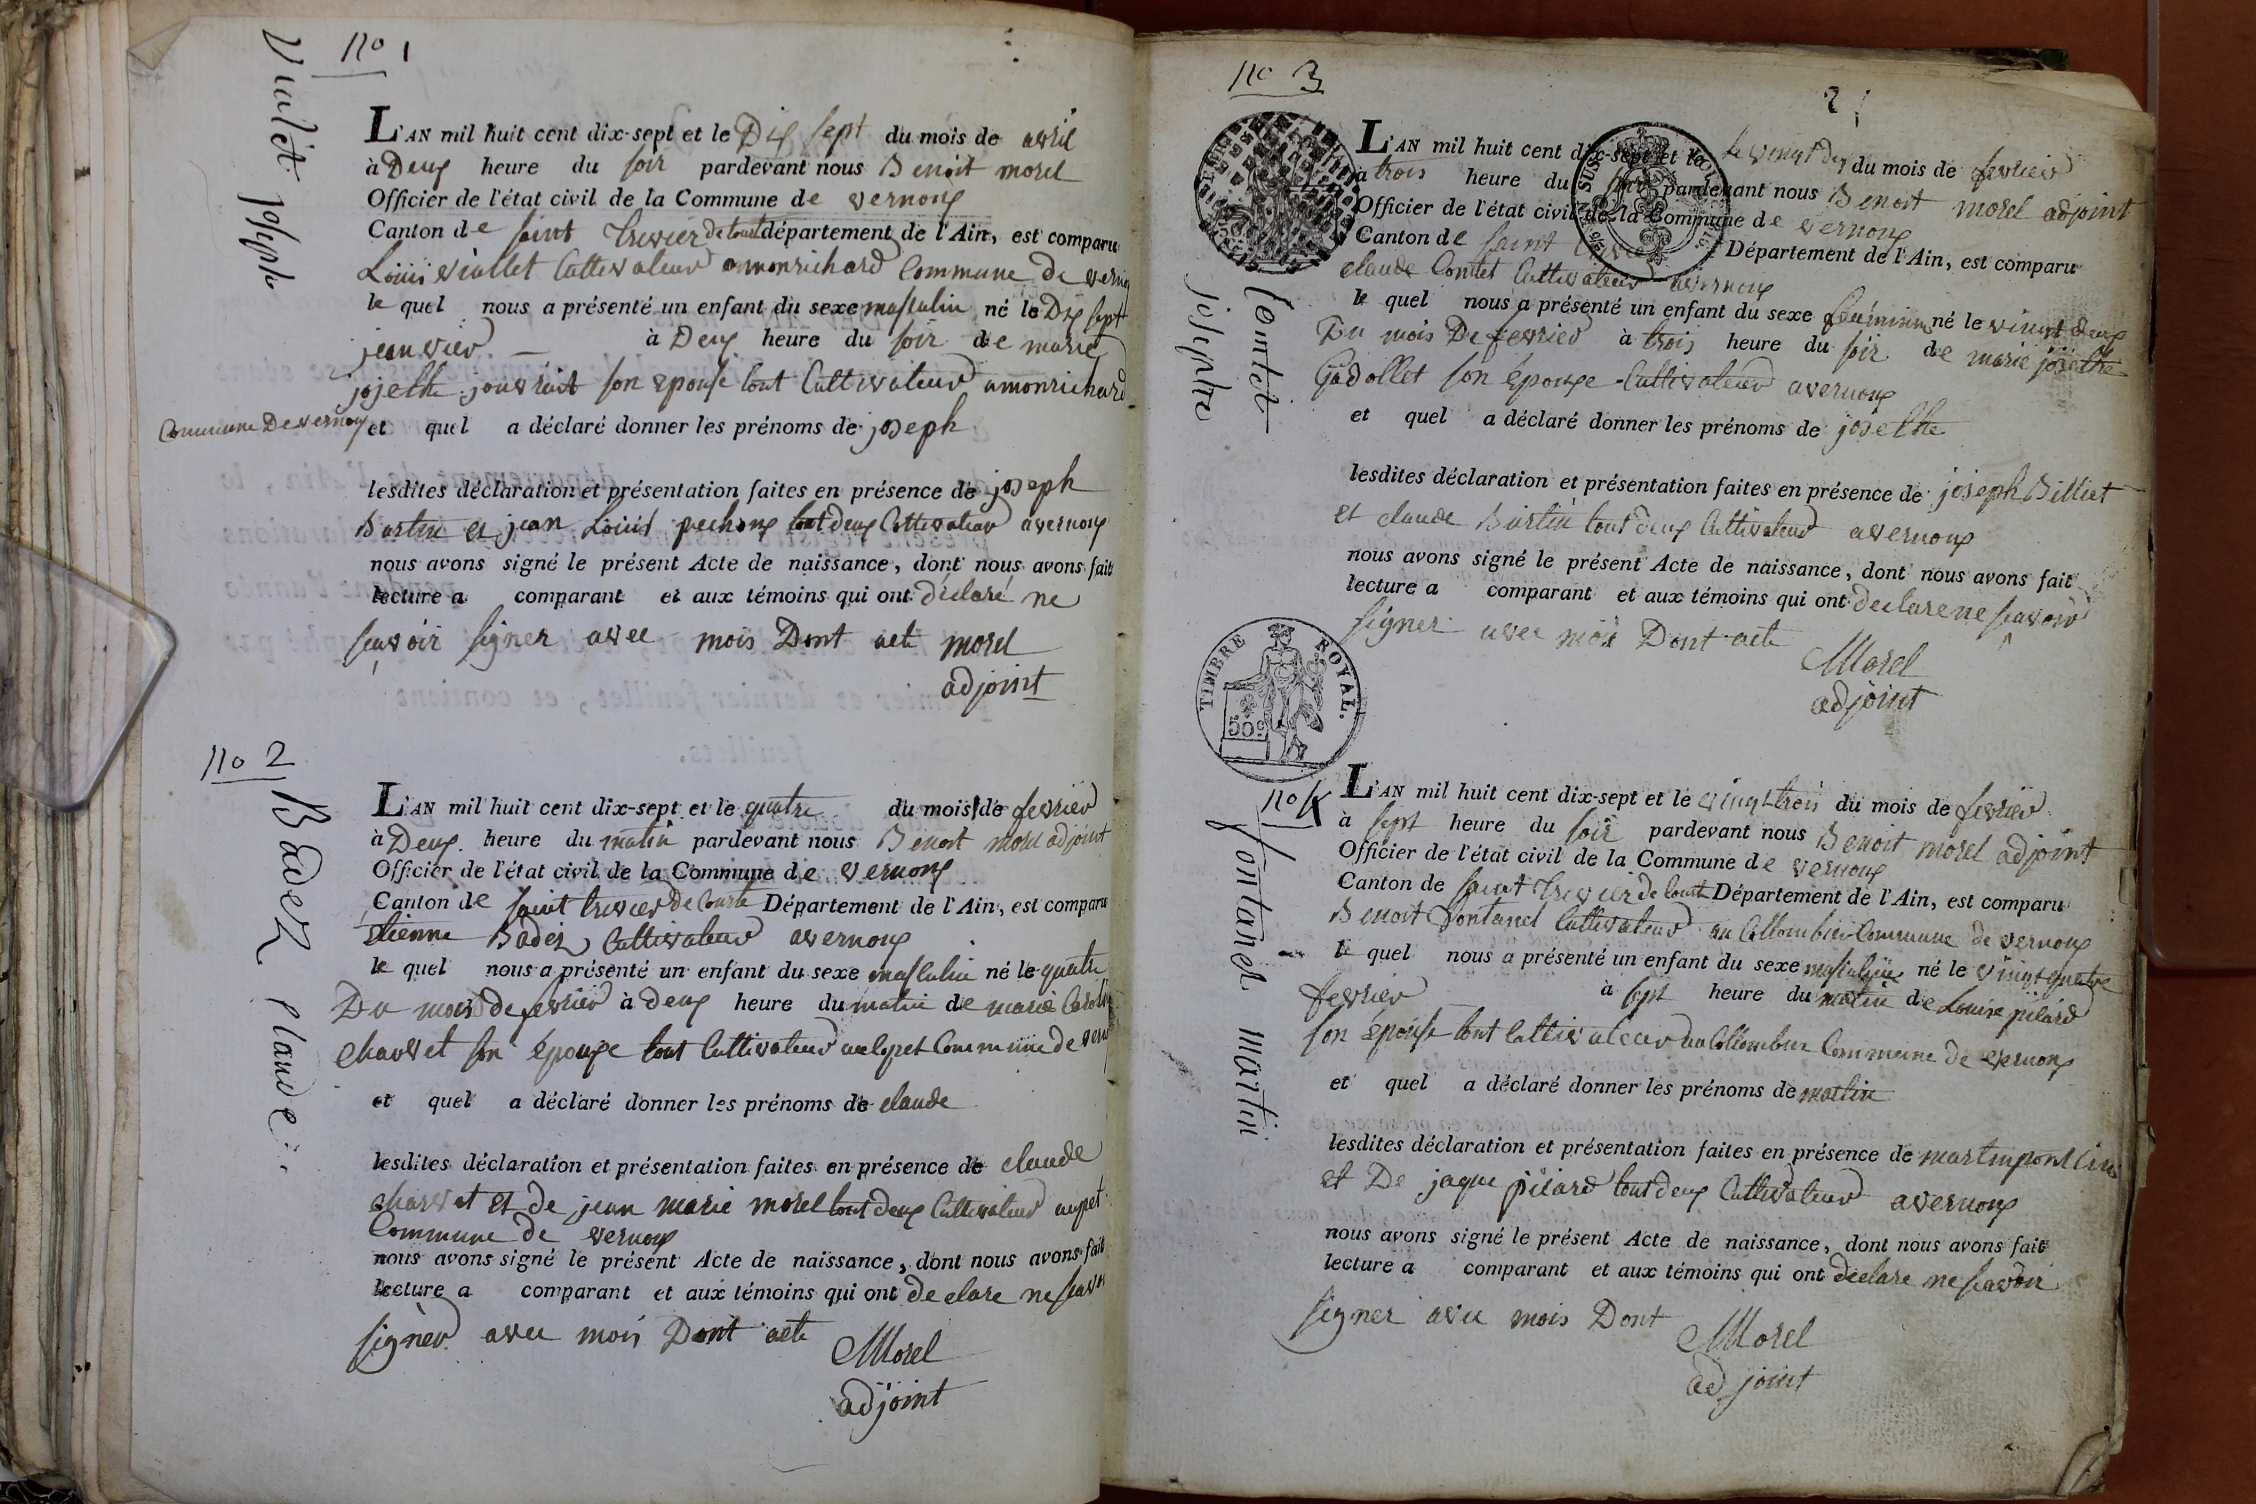 no 1
Vialet joseph
L'AN mil huit cent dix-sept et le Dix sept du mois de avril
à Deux heure du soir pardevant nous Benoit morel
Officier de l'état civil de la Commune de vernoux
Canton de saint Trivier de Court département de l'Ain, est comparu
Louis viallet Cultivateur amonrichard Commune de vernoux
le quel nous a présenté un enfant du sexe masculin né le Dix sept
jeanvier à Deux heure du soir de marie
josethe jouvrait son epouse tout Cultivateur amonrichard
Commune De vernoux et quel a déclaré donner les prénoms de joseph
lesdites déclaration et présentation faites en présence de joseph
Burtin et jean Louis pechoux tout deux Cultivateur avernoux
nous avons signé le présent Acte de naissance, dont nous avons fait
lecture a comparant et aux témoins qui ont déclaré ne
scavoir signer avec mois Dont acte morel
adjoint
no 2
Badez claude
L'AN mil huit cent dix-sept et le quatre du mois de fevrier
à Deux heure du matin pardevant nous Benoit morel adjoint
Officier de l'état civil de la Commune de vernoux
Canton de saint trivier de Courte Département de l'Ain, est comparu
Etienne Badez Cultivateur avernoux
le quel nous a présenté un enfant du sexe masculin né le quatre
Du mois de fevrier à deux heure du matin de marie
Charvet son épouse tout Cultivateur Commune de
et quel a déclaré donner les prénoms de claude
lesdites déclaration et présentation faites en présence de claude
charvet et de jean marie morel tout deux Cultivateur aupet
Commune de vernoux
nous avons signé le présent Acte de naissance, dont nous avons fait
lecture a comparant et aux témoins qui ont declare ne scavoir
signer avec mois Dont acte
Morel
adjoint
no 3
2
Contet josephte
L'AN mil huit cent dix-sept et le le vingt dex du mois de fevrier
à trois heure du soir pardevant nous Benoit morel adjoint
Officier de l'état civil de la Commune de vernoux
Canton de saint Département de l'Ain, est comparu
claude Contet Cultivateur avernoux
le quel nous a présenté un enfant du sexe féminin né le vingt deux
Du mois De fevrier à trois heure du soir de marie josethe
Gadollet son épouse Cultivateur avernoux
et quel a déclaré donner les prénoms de josethe
lesdites déclaration et présentation faites en présence de joseph Billiet
et claude Burtin tout deux Cultivateur avernoux
nous avons signé le présent Acte de naissance, dont nous avons fait
lecture a comparant et aux témoins qui ont declare ne scavoir
signer avec mois Dont acte
Morel
adjoint
TIMBRE ROYAL.
50c
no 4
fontanel martin
L'AN mil huit cent dix-sept et le vingt trois du mois de fevrier
à sept heure du soir pardevant nous Benoit morel adjoint
Officier de l'état civil de la Commune de vernoux
Canton de saint Trivier de Court Département de l'Ain, est comparu
Benoit fontanel Cultivateur au Collombier Commune de vernoux
le quel nous a présenté un enfant du sexe masculin né le vingt quatre
fevrier à sept heure du matin de Louise pilard
son épouse tout Cultivateur au Collombier Commune de vernoux
et quel a déclaré donner les prénoms de martin
lesdites déclaration et présentation faites en présence de martin
et De jaque pilard tout deux Cultivateur avernoux
nous avons signé le présent Acte de naissance, dont nous avons fait
lecture a comparant et aux témoins qui ont declare ne scavoir
signer avec mois Dont
Morel
adjoint